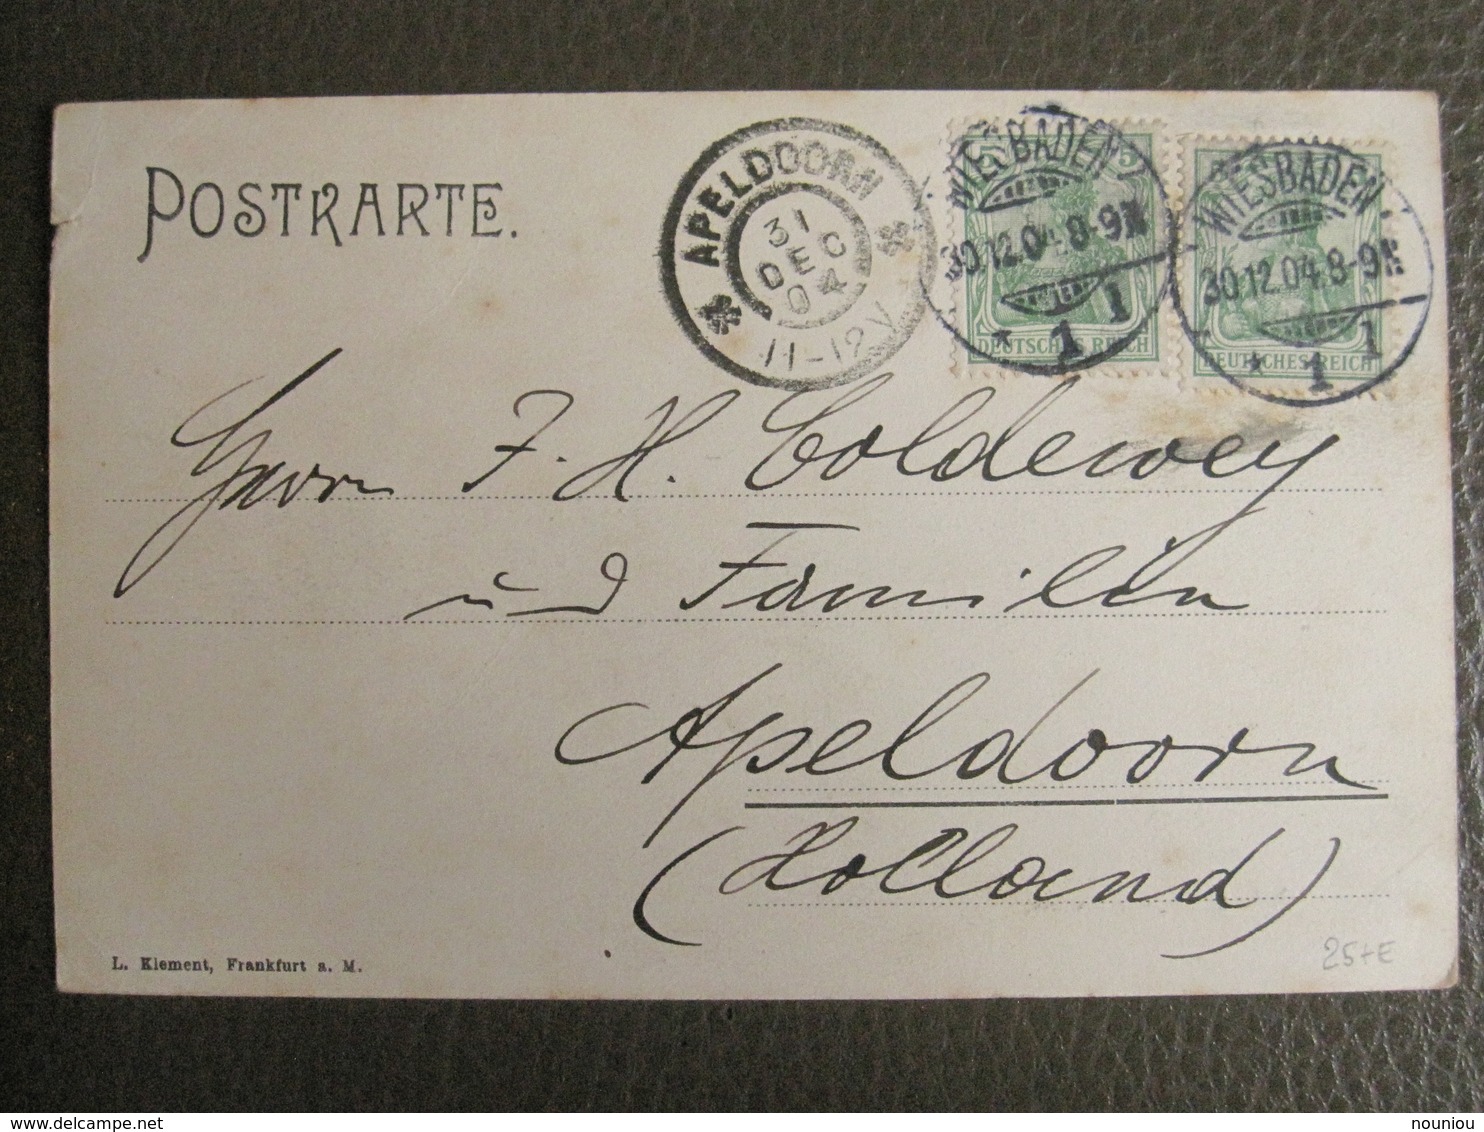 POSTKARTE.
APELDOORN
31 DEC 04
11-12V
WIESBADEN
30.12.04. 8-9N.
* 1 1
5 5
DEUTSCHES REICH
WIESBADEN
30.12.04. 8-9N.
* 1 1
DEUTSCHES REICH
Herrn J. H. Coldewey
und Familie
Apeldoorn
(Holland)
L. Klement, Frankfurt a. M.
25+E
delcampe.net
nouniou